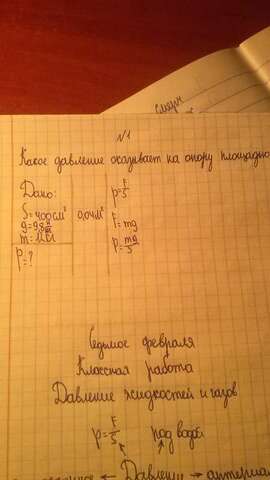 N1
Какое давление оказывает на опору площадью
Дано:
S=400см² 0,04м²
g=9,8
m=
p=?
p=F/S
F=mg
p=mg/S
Седьмое февраля
Классная работа
Давление жидкостей и газов
p=F/S под водой
← Давление →